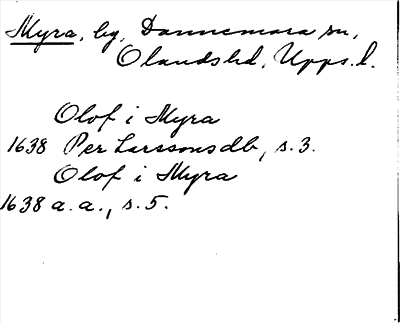 Myra, by, Dannemora sn,
Olandshd, Upps.l.
Olof i Myra
1638 Per Larssons db, s.3.
Olof i Myra
1638 a.a., s.5.